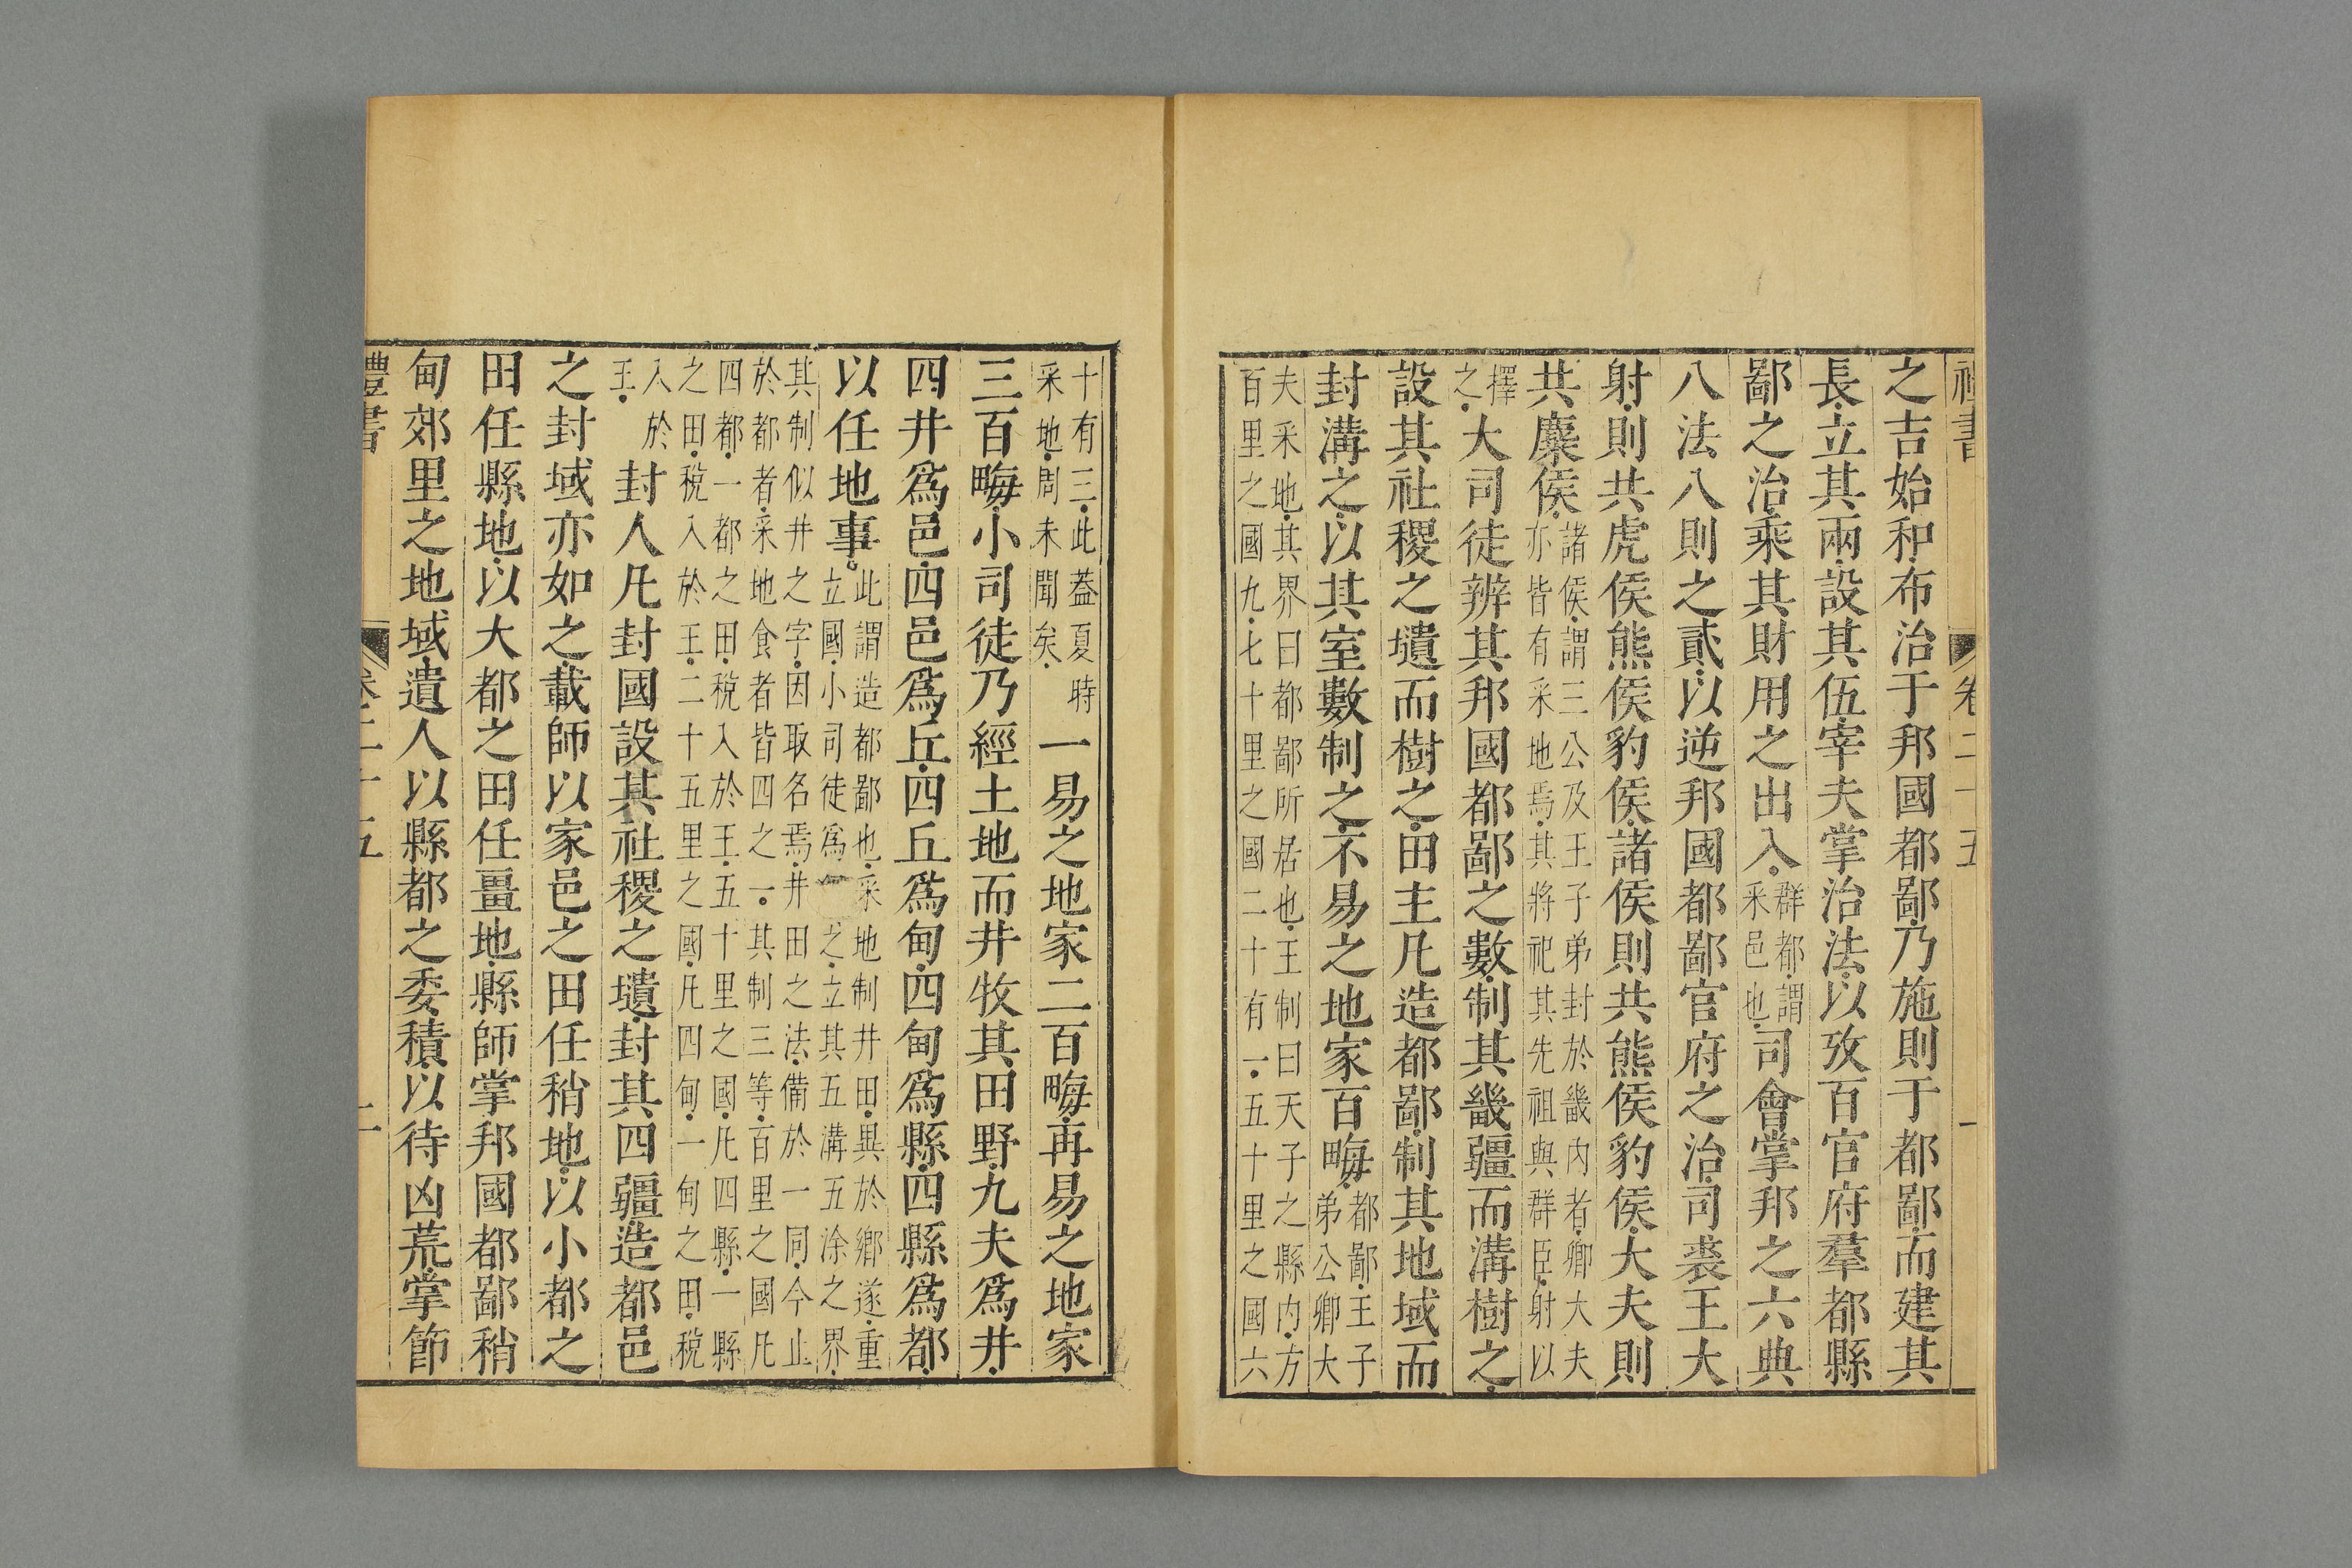 禮書 卷二十五 一
之吉始和布治于邦國都鄙乃施則于都鄙而建其
長立其兩設其伍宰夫掌治法以攷百官府羣都縣
鄙之治乘其財用之出入群都謂采邑也司會掌邦之六典
八法八則之貳以逆邦國都鄙官府之治司裘王大
射則共虎侯熊侯豹侯諸侯則共熊侯豹侯大夫則
共麋侯諸侯謂三公及王子弟封於畿內者卿大夫亦皆有采地焉其將祀其先祖與群臣射以
擇之大司徒辨其邦國都鄙之數制其畿疆而溝樹之
設其社稷之壝而樹之田主凡造都鄙制其地域而
封溝之以其室數制之不易之地家百畮都鄙王子弟公卿大
夫采地其界曰都鄙所居也王制曰天子之縣內方
百里之國九七十里之國二十有一五十里之國六
十有三此葢夏時采地周未聞矣一易之地家二百畮再易之地家
三百畮小司徒乃經土地而井牧其田野九夫爲井
四井爲邑四邑爲丘四丘爲甸四甸爲縣四縣爲都
以任地事此謂造都鄙也采地制井田異於鄉遂重立國小司徒爲之立其五溝五涂之界
其制似井之字因取名焉井田之法備於一同今止
於都者采地食者皆四之一其制三等百里之國凡
四都一都之田稅入於王五十里之國凡四縣一縣
之田稅入於王二十五里之國凡四甸一甸之田稅
入於王封人凡封國設其社稷之壝封其四疆造都邑
之封域亦如之載師以家邑之田任稍地以小都之
田任縣地以大都之田任畺地縣師掌邦國都鄙稍
甸郊里之地域遺人以縣都之委積以待凶荒掌節
禮書 卷二十五 二